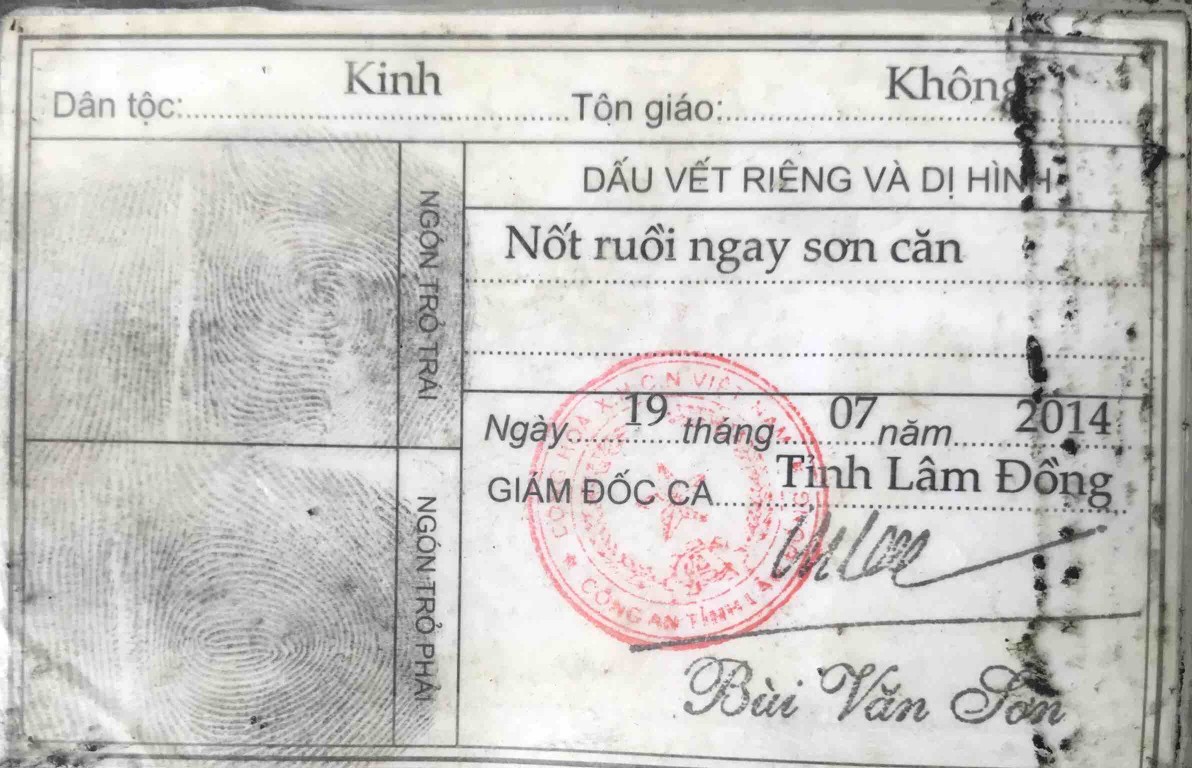 Dân tộc: Kinh Tôn giáo: Không
DẤU VẾT RIÊNG VÀ DỊ HÌNH
NGÓN TRỎ TRÁI
Nốt ruồi ngay sơn căn
Ngày 19 tháng 07 năm 2014
GIÁM ĐỐC CA Tỉnh Lâm Đồng
NGÓN TRỎ PHẢI
CÔNG AN TỈNH
Bùi Văn Sơn